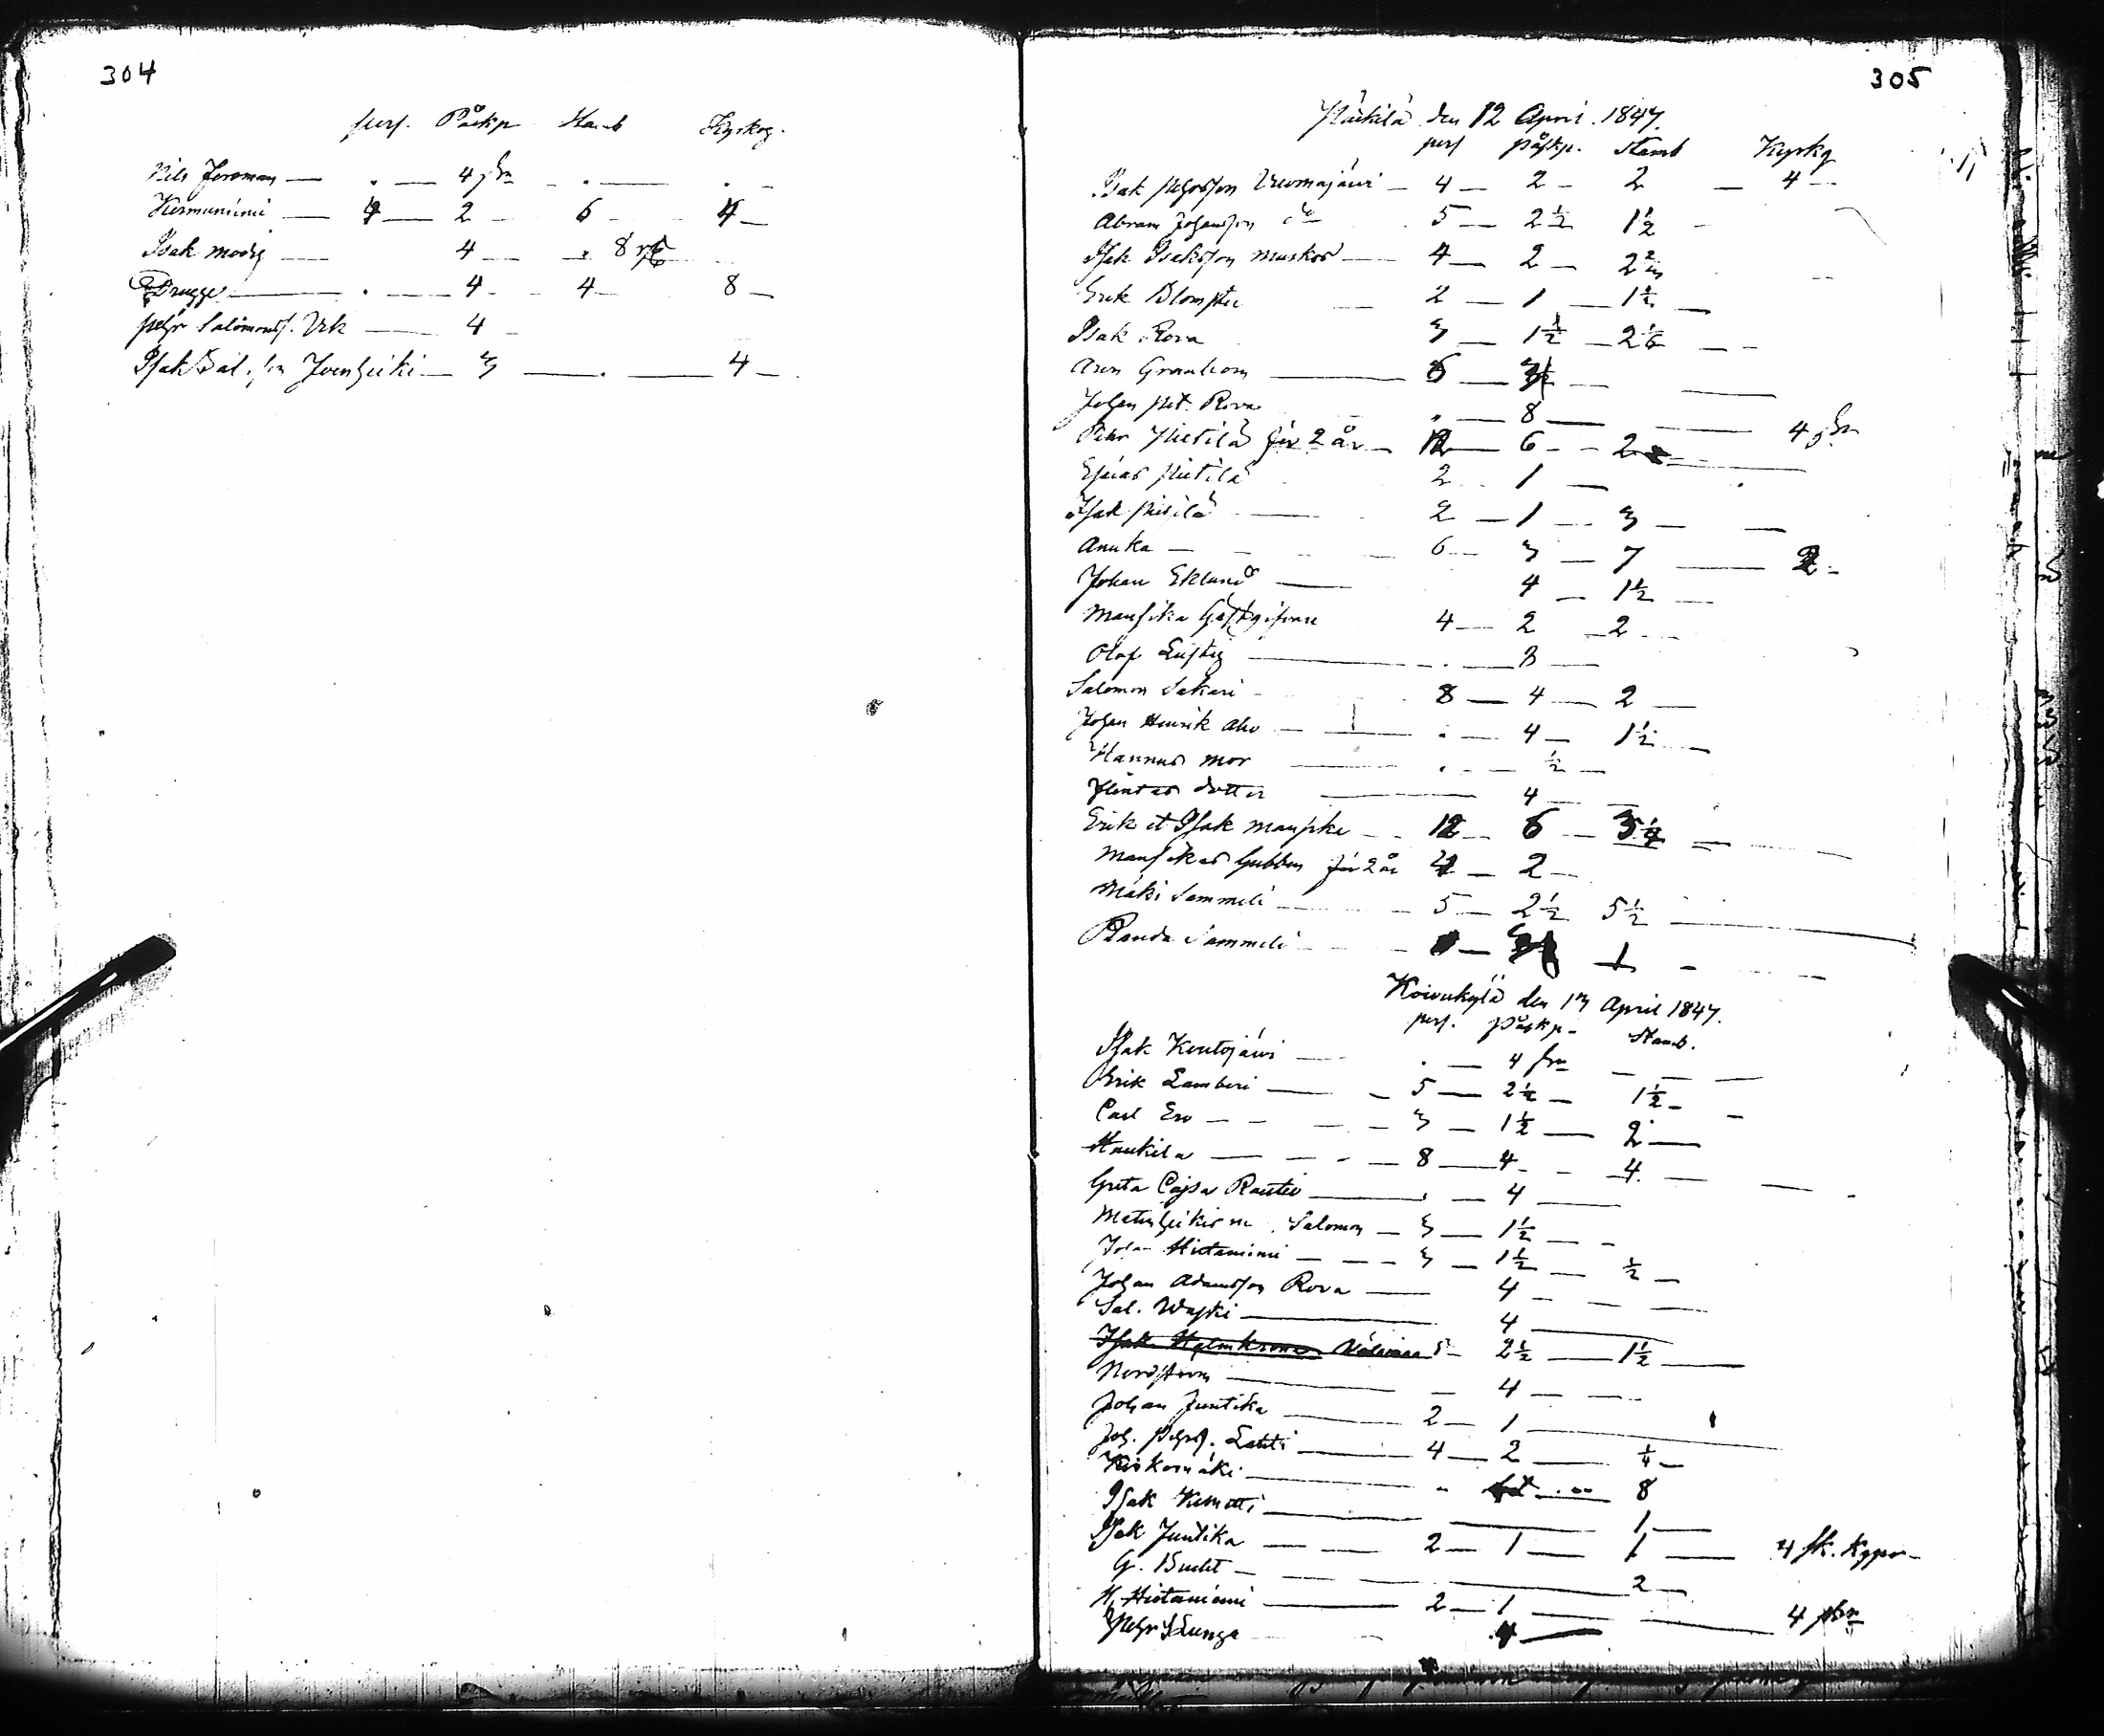 304
pers. Påskp Stamb Kyrkog.
Nils Forsman — . — 4 skn — . — . —
Kermuniemi — 4 — 2 — 6 — 4 —
Isak Modig — 4 — . 8 rg
Drugge — . — 4 — 4 — 8 —
Pehr Salomonss. Vek — 4 —
Isak Sal. son Jounheiki — 3 — . — 4 —
305
den 12 April 1847.
pers påskp. Stamb Kyrkg
Isak Pehrsson Vuomajärvi — 4 — 2 — 2 — 4 —
Abram Johansson do 5 — 2½ 1½ —
Isak Isaksson Muskos — 4 — 2 — 2
Erik Blomster 2 — 1 — 1½ —
Isak Rova 3 — 1½ — 2
Aron Grankom — 6 — 3 —
Johan Pet. Rova " — 8 —
Pehr Pietilä för 2 år — 12 — 6 — 2 — 4 skn
Esaias Pietilä 2 — 1 —
Isak Pietilä — 2 — 1 — 3 — —
Anuka — 6 — 3 — 7 — 2 —
Johan Eklund — 4 — 1½ —
Mansikka Gästgifvare 4 — 2 — 2 —
Olof Lustig — . — 8 —
Salomon Sakari — 8 — 4 — 2 —
Johan Henrik Aho — . — 4 — 1½ —
Hannus mor — . — ½ —
dotter — 4 —
Erik et Isak Mansika — 12 — 6 —
Mansikas Gubben för 2 år 4 — 2 —
Mäki Sammeli — 5 — 2½ 5½ —
Randa Sammeli — 1 —
Koivukylä den 13 April 1847.
pers. påskp. Stamb.
Isak Kentojärvi — . — 4 skn —
Erik Lamberi — 5 — 2½ — 1½ —
Carl Ero — 3 — 1½ — 2 —
Haukila — 8 — 4 — 4 —
Greta Cajsa Rautio — . — 4 —
Salomon — 3 — 1½ —
Johan Hietaniemi — 3 — 1½ — ½ —
Johan Adamsson Rova — 4 —
Sal. Waski — 4 —
5 — 2½ — 1½ —
Nordstrom — 4 —
Johan Juntika — 2 — 1 —
Joh. Pehrss. Lahti — 4 — 2 — ¼ —
Kiskomäki — " — 8
Isak Kumotti — 1 —
Isak Juntika — 2 — 1 — 1 — 4 sk. kppr —
G. Budet — 2 —
H. Hietaniemi — 2 — 1 — 4 skn
Pehr Lunga 4 —